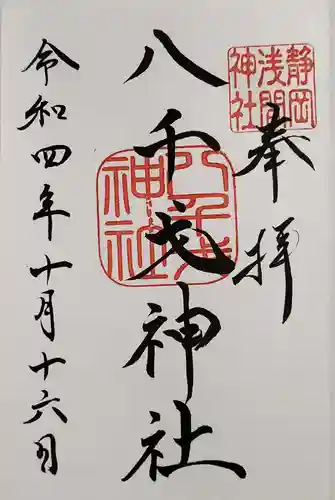 奉拝
静岡
浅間
神社
八千戈神社
八千戈
神社
令和四年十月十六日